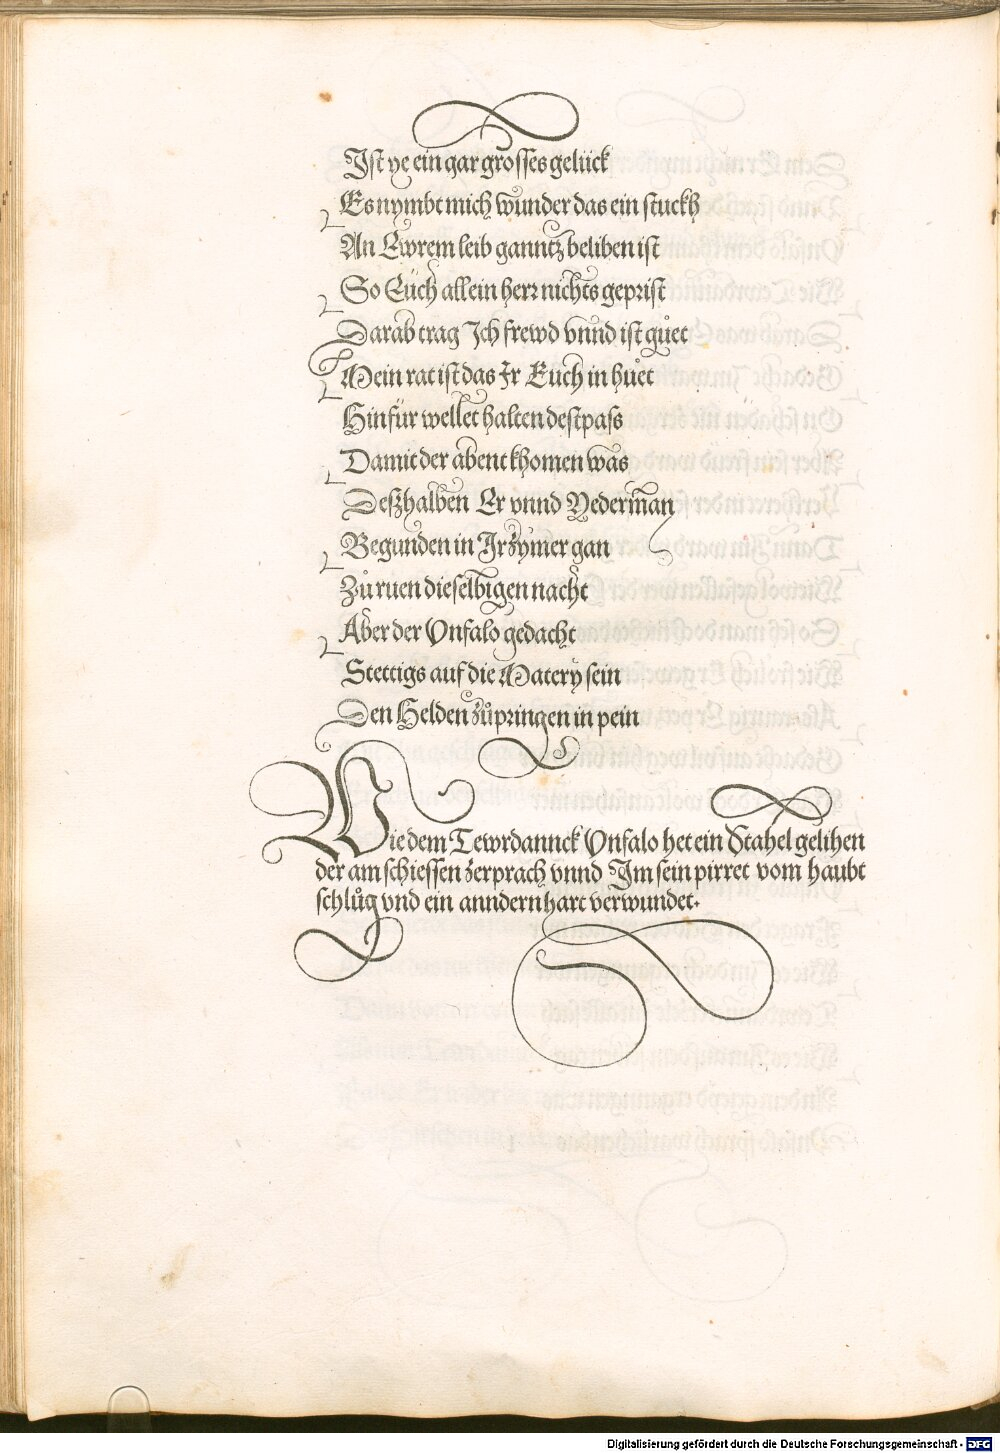 Ist ye ein gar grosses gelück
Es nymbt mich wunder das ein stuckh
An Ewrem leib ganntz beliben ist
So Euch allein herr nichts geprist
Darab trag Ich frewd vnnd ist guet
Mein rat ist das Ir Euch in huet
Hinfür wellet halten destpass
Damit der abent khomen was
Deszhalben Er vnnd Yederman
Begunden in Ir zymer gan
Zů ruen dieselbigen nacht
Aber der Vnfalo gedacht
Stettigs auf die Matery sein
Den Helden zůpringen in pein
Wie dem Tewrdannck Vnfalo het ein Stahel gelihen
der am schiessen zerprach vnnd Im sein pirret vom haubt
schlůg vnd ein anndern hart verwundet.
Digitalisierung gefördert durch die Deutsche Forschungsgemeinschaft - DFG